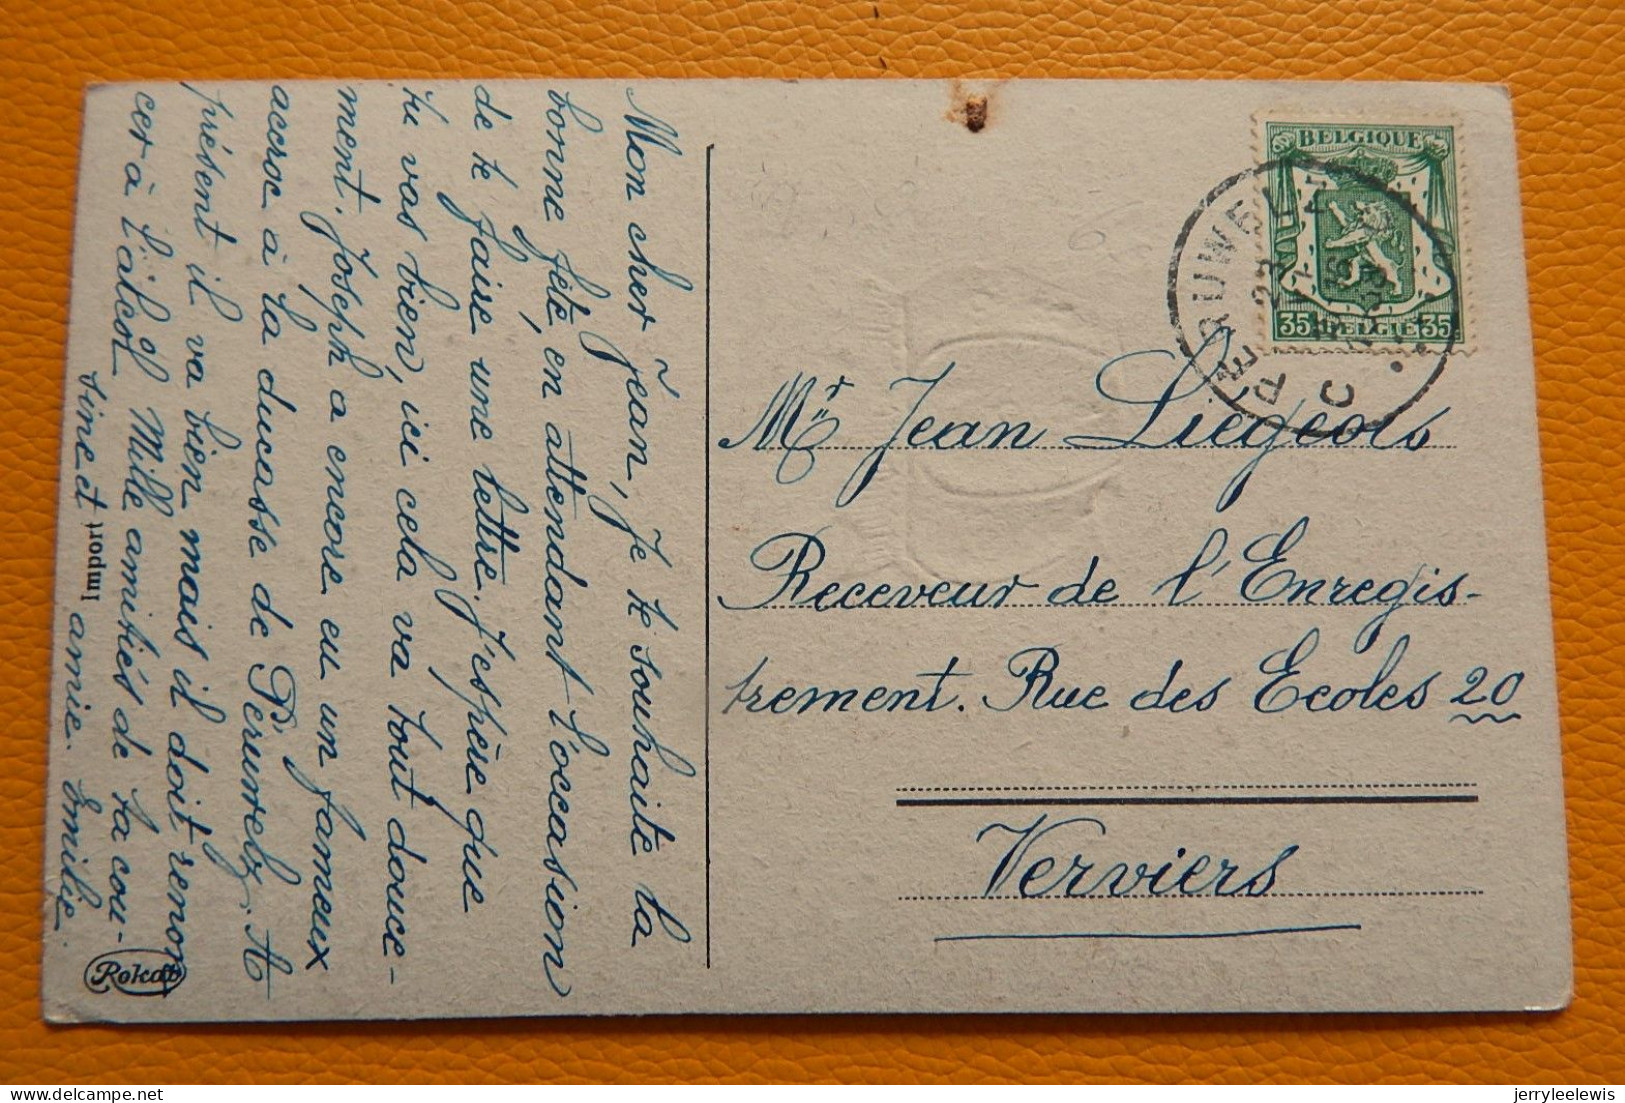 Mon cher Jean, Je te souhaite la
bonne fête, en attendant l'occasion
de te faire une lettre. J'espère que
tu vas bien, ici cela va tout douce-
ment. Joseph a encore eu un fameux
accroc à la ducasse de Péruwelz. A
présent il va bien mais il doit renon
cer à l'alcol. Mille amitiés de ta cou-
sine et amie. Emilie.
Import
Rokat
BELGIQUE
35 BELGIE 35
PERUWELZ
23
C
Mr Jean Liégeois
Receveur de l'Enregis-
trement. Rue des Ecoles 20
Verviers
jerryleelewis